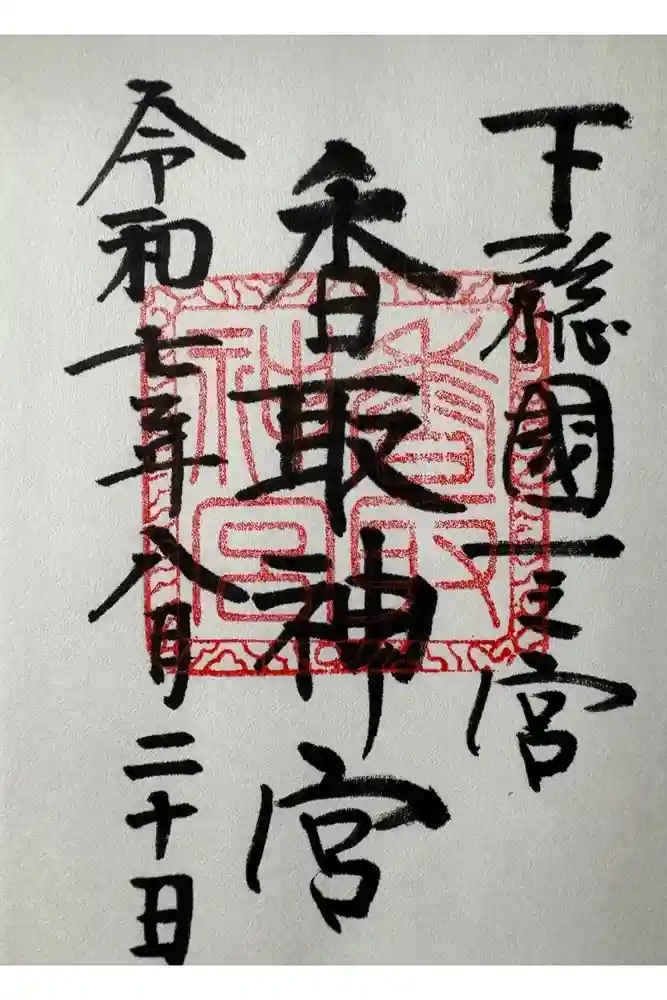 下総國一之宮
香取神宮
香取神宮
令和七年八月二十日